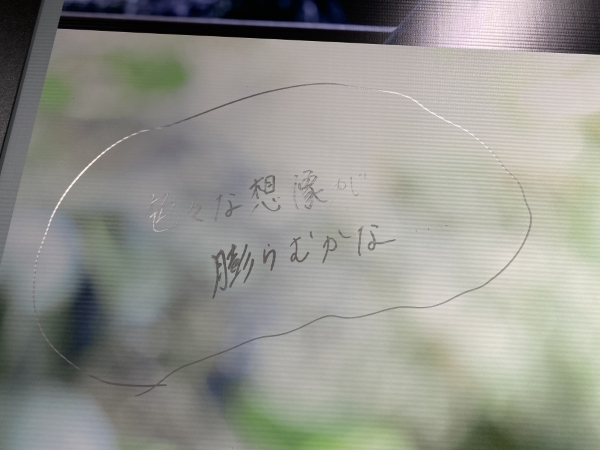 色々な想像が
膨らむかな